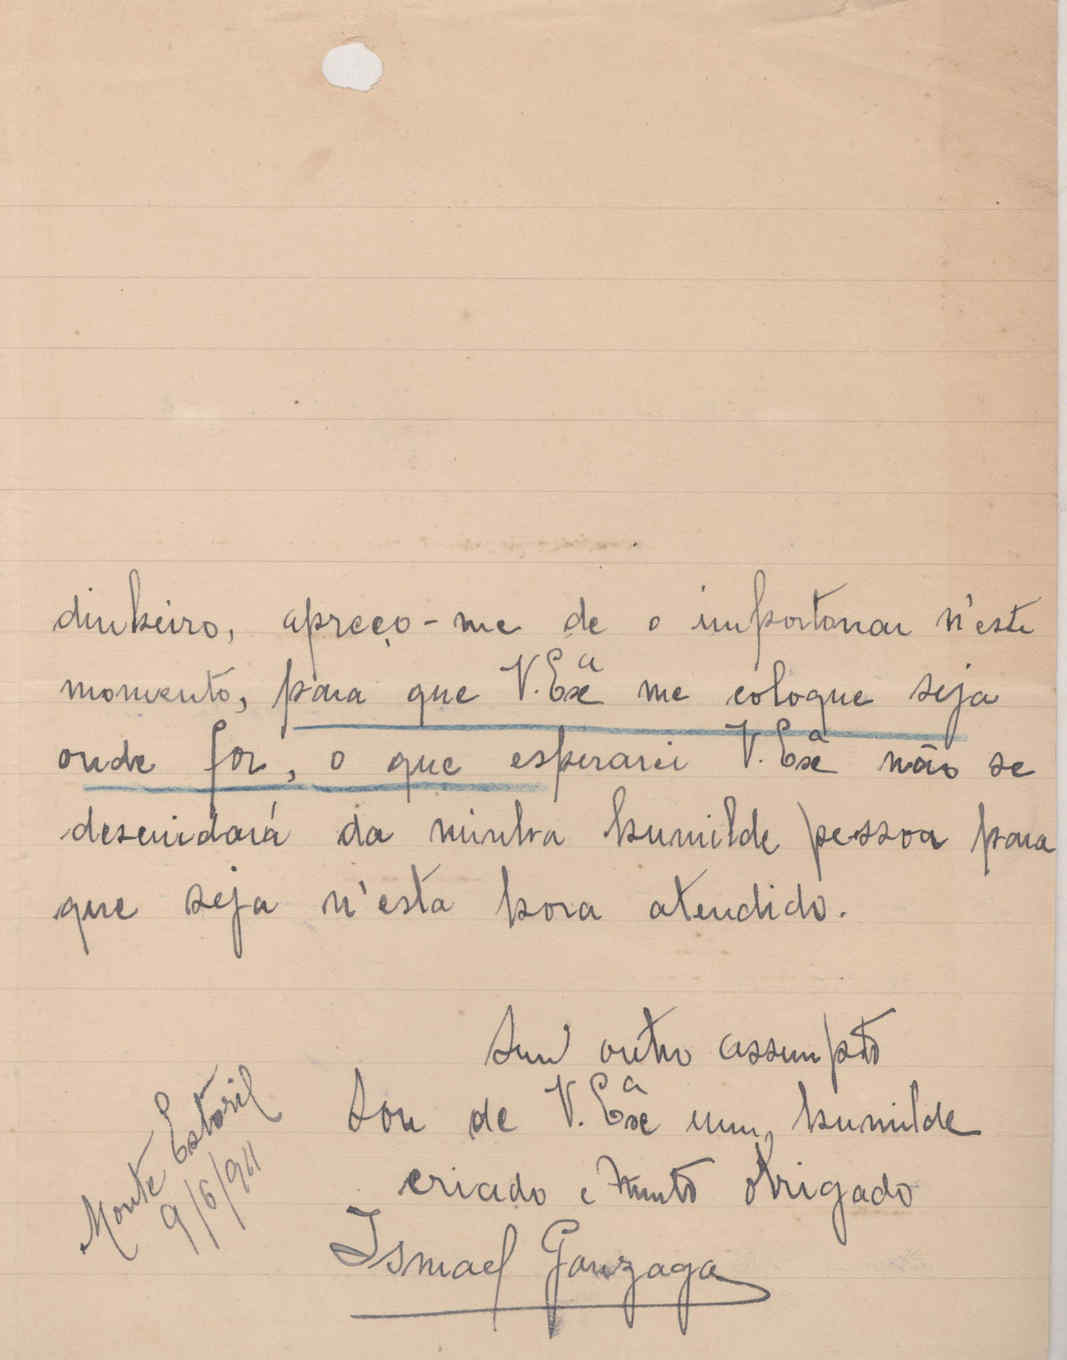 dinheiro, apreço-me de o importonar n'este
momento, para que V. Exª me coloque seja
onde for, o que esperarei V. Exª não se
descuidará da minha humilde pessoa para
que seja n'esta hora atendido.
Sem outro assumpto
Sou de V. Exª um, humilde
criado e muito obrigado
Ismael Gonzaga
Monte Estoril
9/6/941